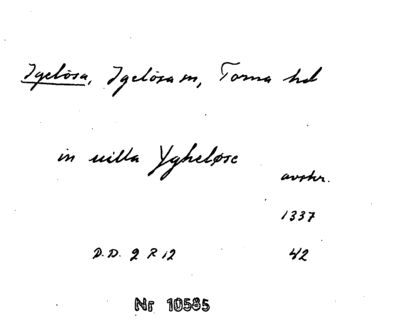 Igelösa, Igelösa sn, Torna hd
in uilla Ygheløse
avskr.
1337
D.D. 2 R 12 42
Nr 10585